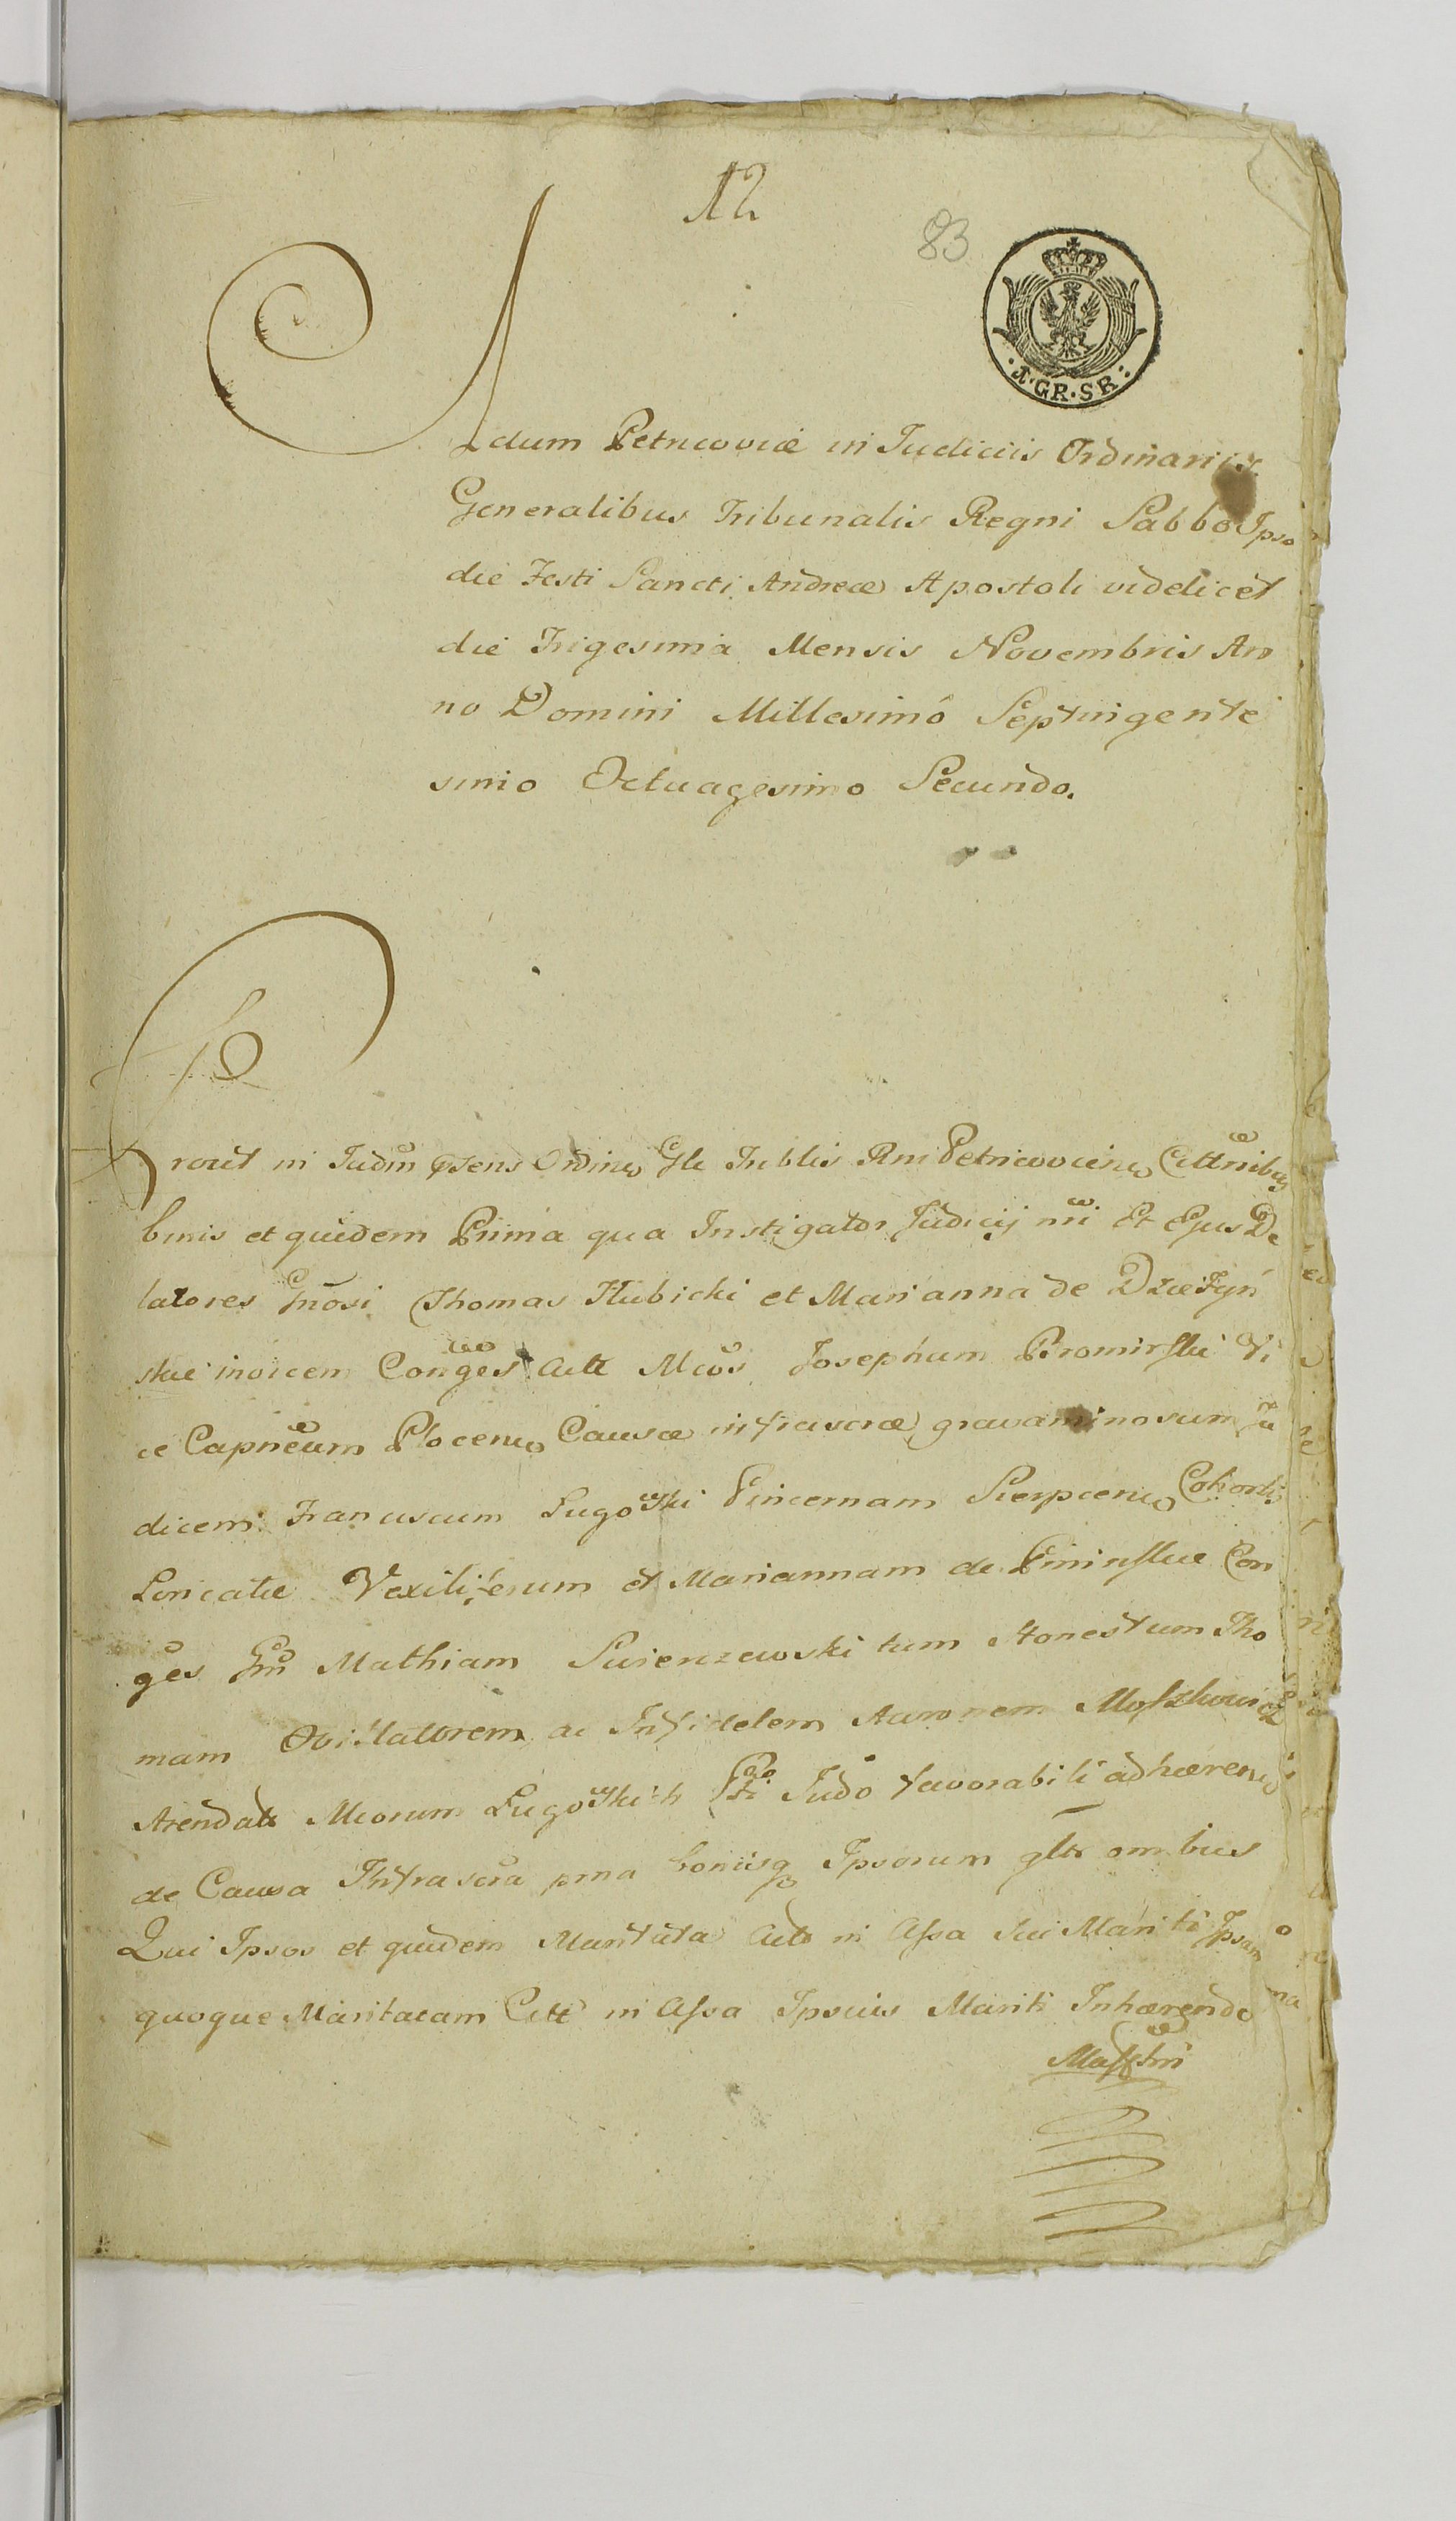 12
83
·1·GR·SR:
Actum Petricoviæ in Judiciis Ordinariis
Generalibus Tribunalis Regni Sabbo Ipso
die Festi Sancti Andreæ Apostoli videlicet
die Trigesima Mensis Novembris An
no Domini Millesimô Septuigente
simo Octuagesimo Secundo.
Prout in Judm Ordine Gle Trblis Rni Petricovien Cittnibus
binis et quidem Prima qua Instigator Judicij nri Et Ejus De
latores Gnosi Thomas Hubicki et Marianna de
skie invicem Conges Citt Mcos Josephum Promirski Vi
ce Capneum Plocen Causæ infrascræ gravaminosum Ju
dicem Franciscum Lugoski Pincernam Sierpcen Cohortis
Loricatæ Vexiliferum et Mariannam de Con
ges Gn Mathiam Swienzewski tum Honestum Tho
mam ac Infidelem Aaronem Moszkowicz
Arendat Mcorum Lugoskich Judo favorabili adhæren
de Causa Infrascra pma bonisq Ipsorum gltr ombus
Qui Ipsos et quidem Maritata Citt in Assa Sui Mariti Ipsam
quoque Maritatam Citt in Assa Ipsius Mariti Inhærendo